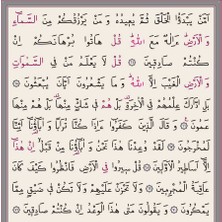 أَمَّنْ يَبْدَؤُا الْخَلْقَ ثُمَّ يُعِيدُهُ وَمَنْ يَرْزُقُكُمْ مِنَ السَّمَاءِ
وَالْأَرْضِ أَإِلَٰهٌ مَعَ اللَّهِ قُلْ هَاتُوا بُرْهَانَكُمْ إِنْ
كُنْتُمْ صَادِقِينَ ۝ قُلْ لَا يَعْلَمُ مَنْ فِي السَّمَوَاتِ
وَالْأَرْضِ الْغَيْبَ إِلَّا اللَّهُ وَمَا يَشْعُرُونَ أَيَّانَ يُبْعَثُونَ ۝
بَلِ ادَّارَكَ عِلْمُهُمْ فِي الْآخِرَةِ بَلْ هُمْ فِي شَكٍّ مِنْهَا بَلْ هُمْ مِنْهَا
عَمُونَ ۝ وَقَالَ الَّذِينَ كَفَرُوا أَإِذَا كُنَّا تُرَابًا وَآبَاؤُنَا أَئِنَّا
لَمُخْرَجُونَ ۝ لَقَدْ وُعِدْنَا هَٰذَا نَحْنُ وَآبَاؤُنَا مِنْ قَبْلُ إِنْ هَٰذَا
إِلَّا أَسَاطِيرُ الْأَوَّلِينَ ۝ قُلْ سِيرُوا فِي الْأَرْضِ فَانْظُرُوا كَيْفَ كَانَ
عَاقِبَةُ الْمُجْرِمِينَ ۝ وَلَا تَحْزَنْ عَلَيْهِمْ وَلَا تَكُنْ فِي ضَيْقٍ مِمَّا
يَمْكُرُونَ ۝ وَيَقُولُونَ مَتَىٰ هَٰذَا الْوَعْدُ إِنْ كُنْتُمْ صَادِقِينَ